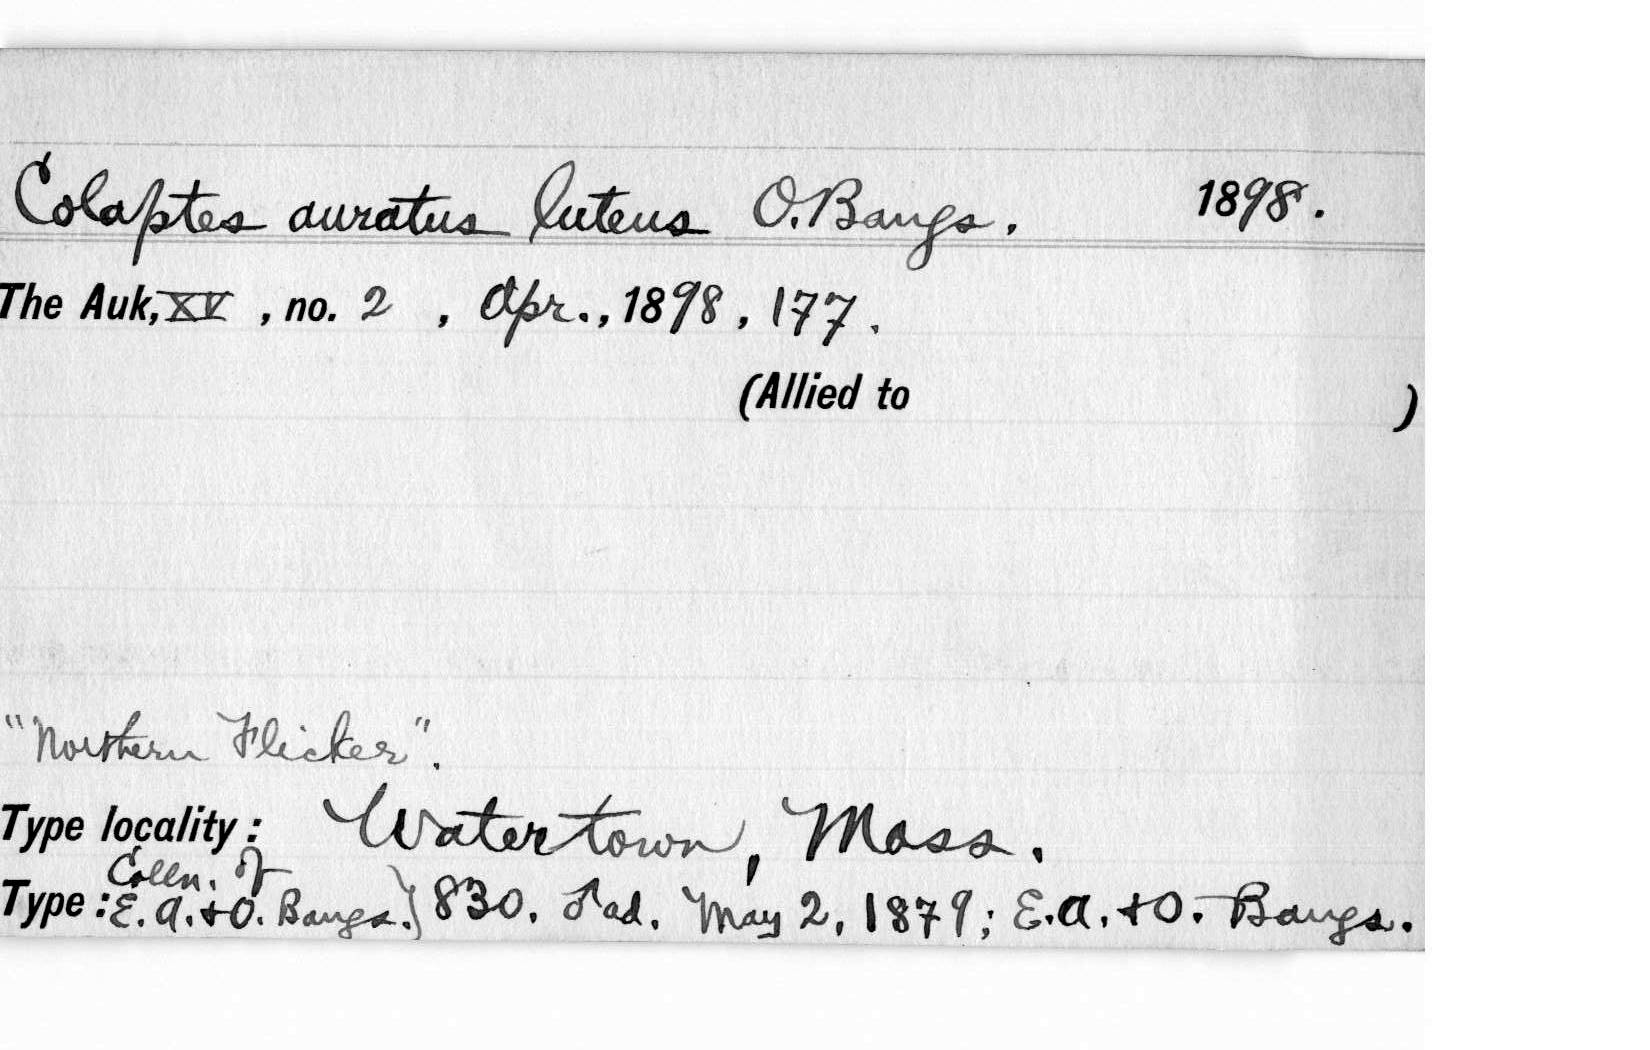 Colaptes auratus luteus O. Bangs. 1898.
The Auk, XV, no. 2, Apr., 1898, 177.
(Allied to )
"Northern Flicker".
Type locality: Watertown, Mass.
Colln. of
Type: E. A. + O. Bangs.} 830. ♂ ad. May 2, 1879; E. A. + O. Bangs.